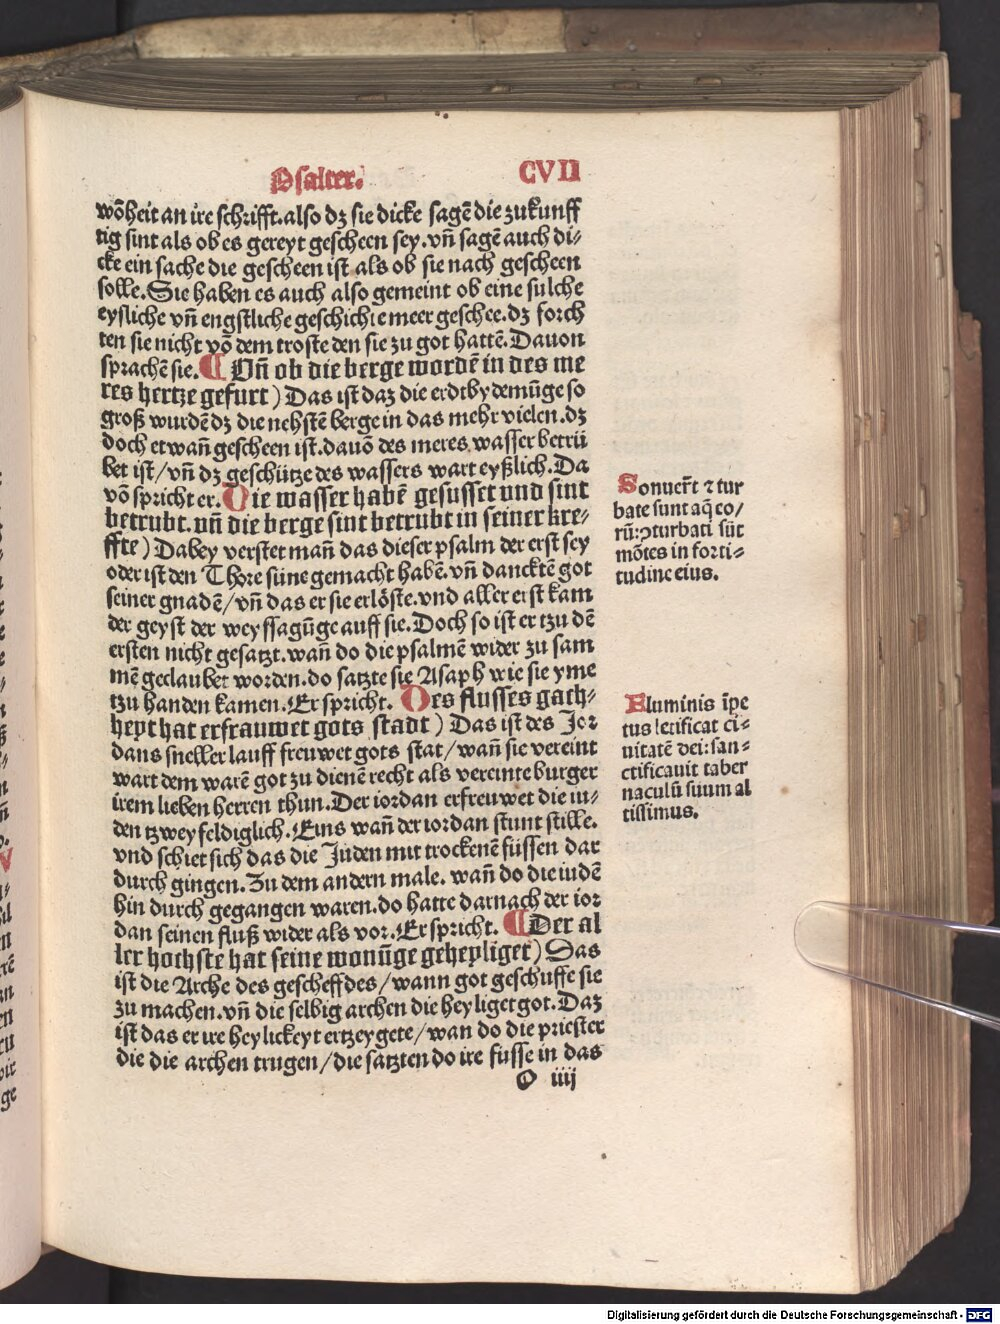 Psalter. CVII
wõheit an ire schrifft. also dz sie dicke sagẽ die zukunff
tig sint als ob es gereyt gescheen sey. vñ sagẽ auch di⸗
cke ein sache die gescheen ist als ob sie nach gescheen
solle. Sie haben es auch also gemeint ob eine sulche
eysliche vñ engstliche geschichte meer geschee. dz forch
ten sie nicht võ dem troste den sie zu got hattẽ. Dauon
sprachẽ sie. ¶ Vñ ob die berge wordẽ in des me
res hertze gefurt) Das ist daz die erdtbydemũge so
groß wurdẽ dz die nehstẽ berge in das mehr vielen. dz
doch etwañ gescheen ist. dauõ des meres wasser betrü
bet ist/ vñ dz geschütze des wassers wart eyßlich. Da
võ spricht er. Die wasser habẽ gesusset und sint
betrubt. uñ die berge sint betrubt in seiner kre⸗
ffte) Dabey verstet mañ das dieser psalm der erst sey
oder ist den Thore süne gemacht habẽ. vñ dancktẽ got
seiner gnadẽ/ vñ das er sie erlöste. vnd aller erst kam
der geyst der weyssagũge auff sie. Doch so ist er tzu dẽ
ersten nicht gesatzt. wañ do die psalmẽ wider zu sam
mẽ geclaubet worden. do satzte sie Asaph wie sie yme
tzu handen kamen. Er spricht. Des flusses gach⸗
heyt hat erfrauwet gots stadt) Das ist des Jor
dans sneller lauff freuwet gots stat/ wañ sie vereint
wart dem warẽ got zu dienẽ recht als vereinte burger
irem lieben herren thun. Der iordan erfreuwet die iu⸗
den tzweyfeldiglich. Eins wañ der iordan stunt stille.
vnd schiet sich das die Juden mit trockenẽ füssen dar
durch gingen. Zu dem andern male. wañ do die iudẽ
hin durch gegangen waren. do hatte darnach der ior
dan seinen fluß wider als vor. Er spricht. ¶ Der al
ler hochste hat seine wonũge geheyliget) Das
ist die Arche des gescheffdes/ wann got geschuffe sie
zu machen. vñ die selbig archen die heyliget got. Daz
ist das er ire heylickeyt ertzeygete/ wan do die priester
die die archen trugen/ die satzten do ire füsse in das
O iiij
Sonuer̃t ⁊ tur
bate sunt aq̃ eo/
rũ: ꝯturbati sũt
mõtes in forti⸗
tudine eius.
Fluminis ĩpe
tus letificat ci⸗
uitatẽ dei: san⸗
ctificauit taber
naculũ suum al
tissimus.
Digitalisierung gefördert durch die Deutsche Forschungsgemeinschaft - DFG